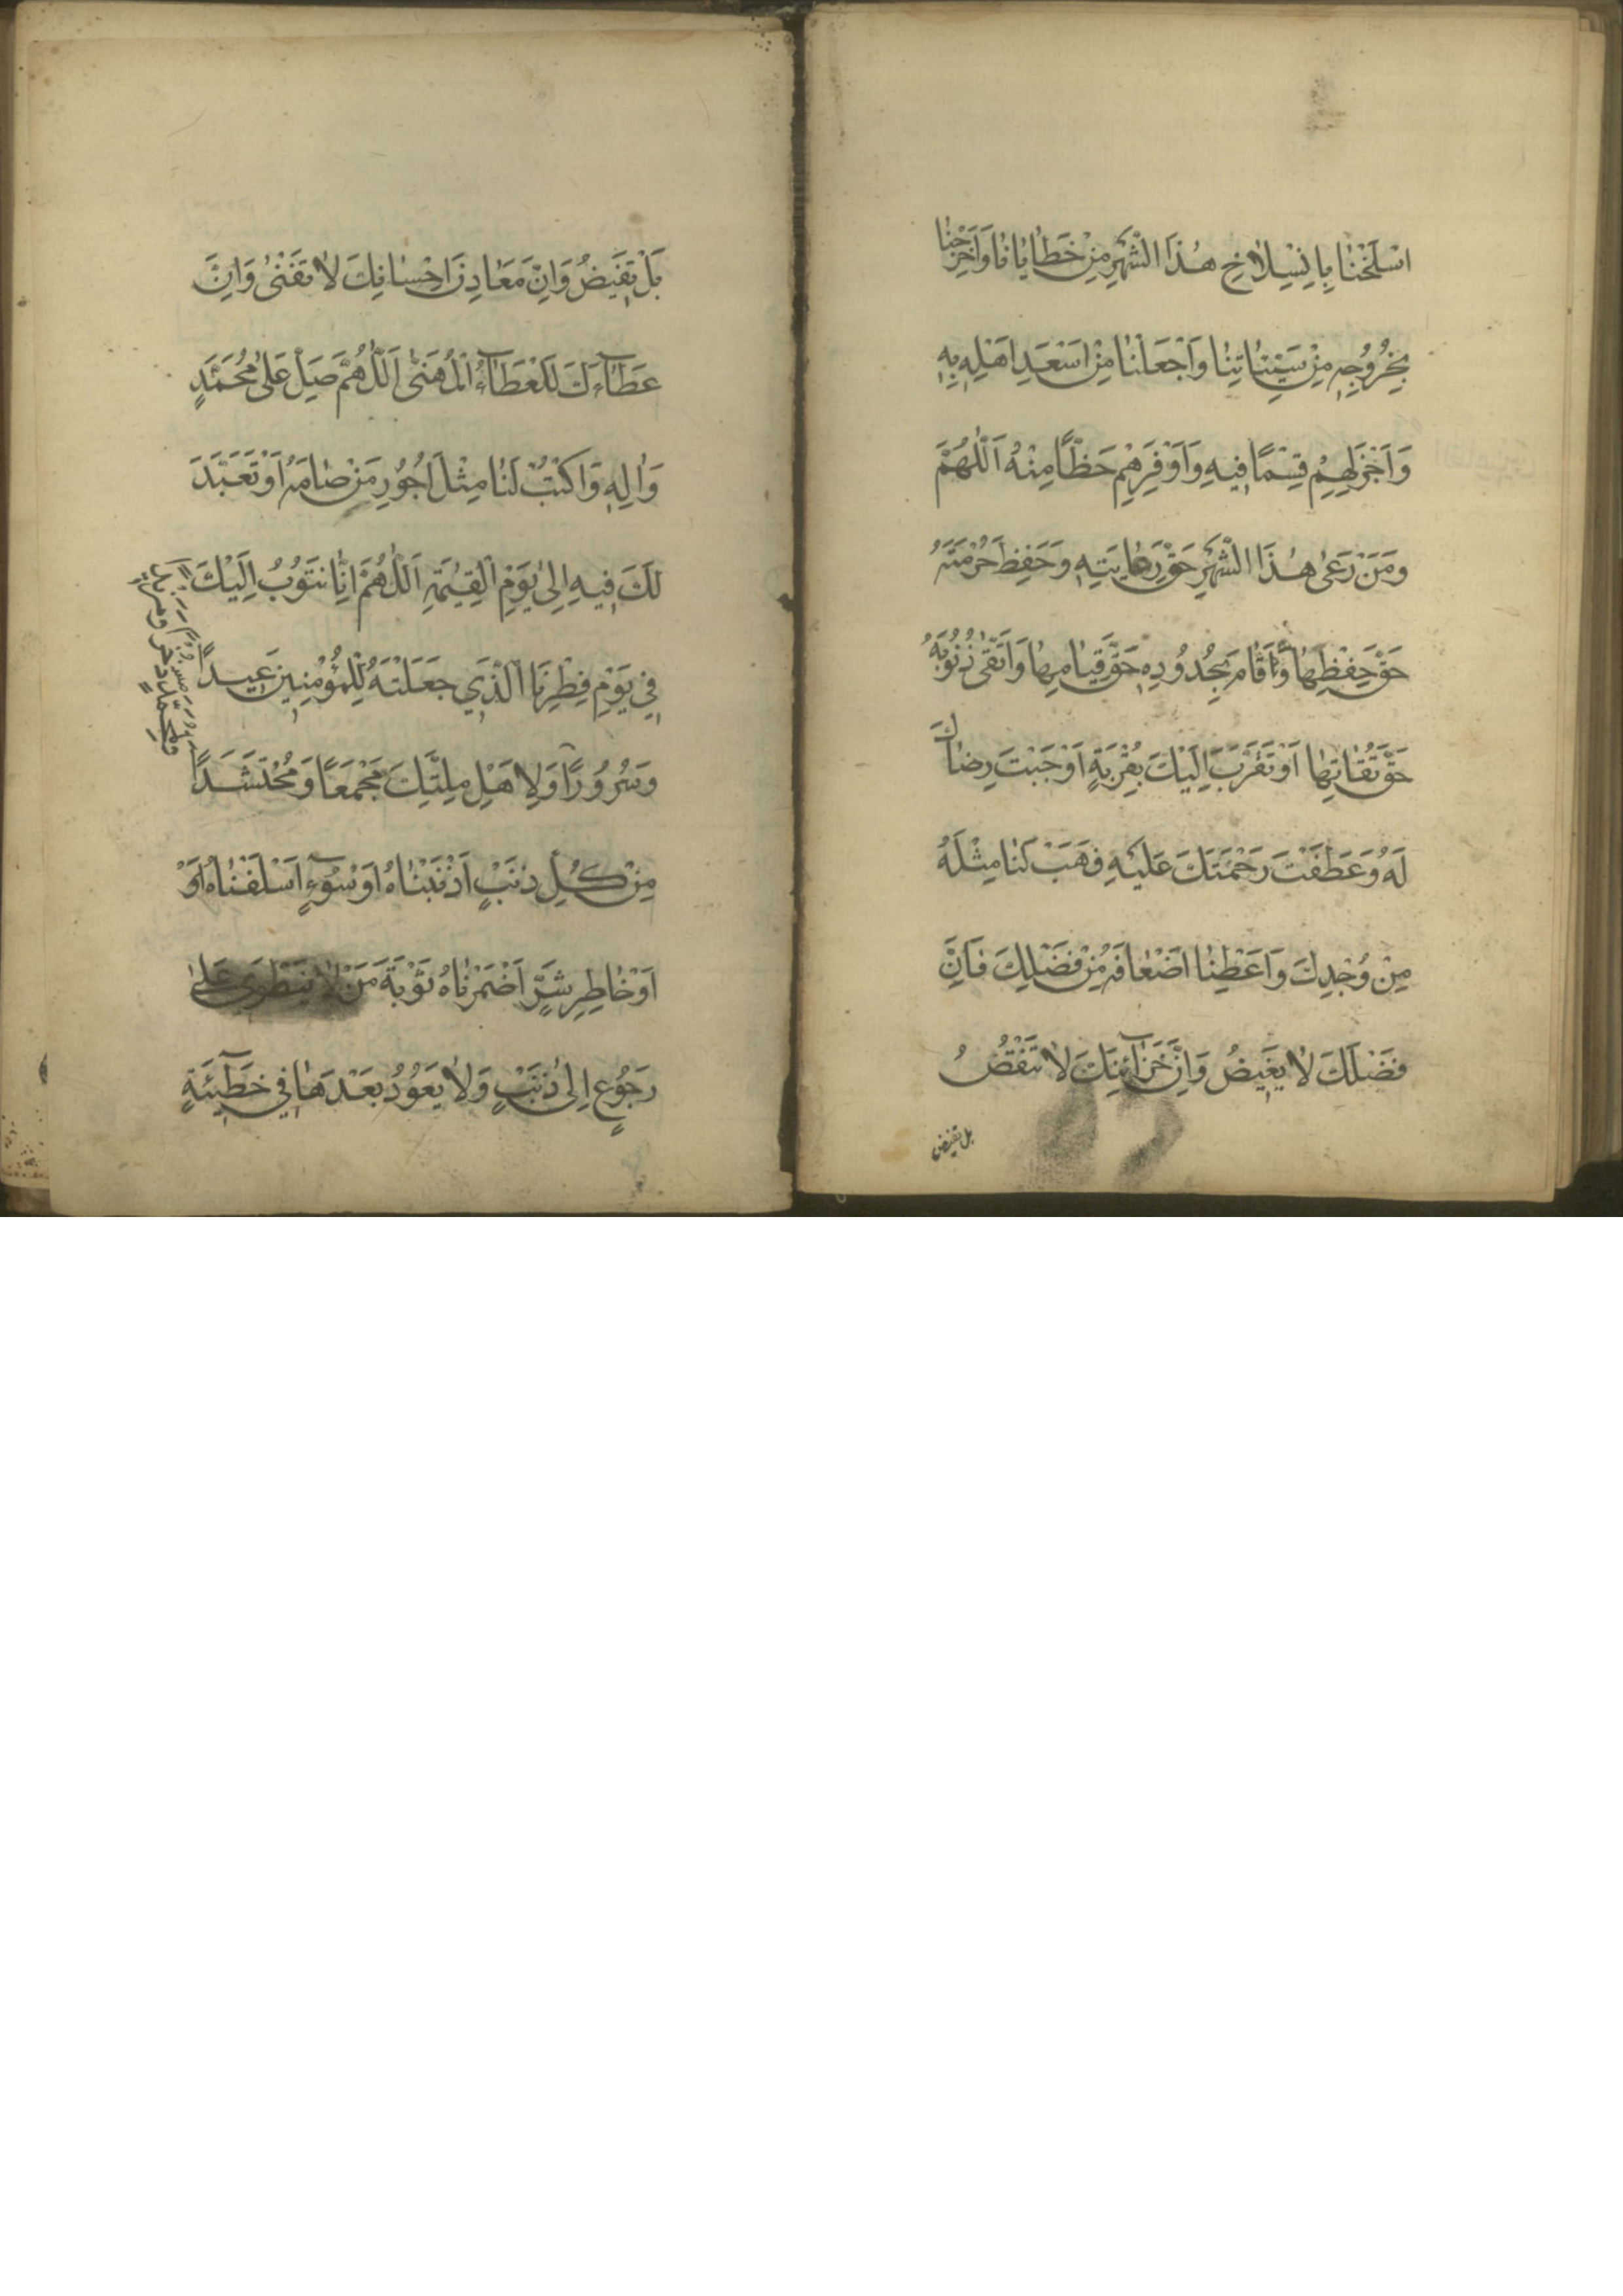 اسْلَخْنَا بِانْسِلَاخِ هٰذَا الشَّهْرِ مِنْ خَطَايَانَا وَاَخْرِجْنَا
بِخُرُوجِهِ مِنْ سَيِّئَاتِنَا وَاجْعَلْنَا مِنْ اَسْعَدِ اَهْلِهِ بِهِ
وَاَجْزَلِهِمْ قِسْمًا فِيهِ وَاَوْفَرِهِمْ حَظًّا مِنْهُ اَللّٰهُمَّ
وَمَنْ رَعٰى هٰذَا الشَّهْرَ حَقَّ رِعَايَتِهِ وَحَفِظَ حُرْمَتَهُ
حَقَّ حِفْظِهَا وَاَقَامَ بِحُدُودِهِ حَقَّ قِيَامِهَا وَاتَّقٰى ذُنُوبَهُ
حَقَّ تُقَاتِهَا اَوْ تَقَرَّبَ اِلَيْكَ بِقُرْبَةٍ اَوْجَبَتْ رِضَاكَ
لَهُ وَعَطَفَتْ رَحْمَتَكَ عَلَيْهِ فَهَبْ لَنَا مِثْلَهُ
مِنْ وُجْدِكَ وَاَعْطِنَا اَضْعَافَهُ مِنْ فَضْلِكَ فَاِنَّ
فَضْلَكَ لَا يَغِيضُ وَاِنَّ خَزَآئِنَكَ لَا تَنْقُصُ
بل تفيض
بَلْ تَفِيضُ وَاِنَّ مَعَادِنَ اِحْسَانِكَ لَا تَفْنٰى وَاِنَّ
عَطَآءَكَ لَلْعَطَآءُ الْمُهَنّٰى اَللّٰهُمَّ صَلِّ عَلٰى مُحَمَّدٍ
وَاٰلِهِ وَاكْتُبْ لَنَا مِثْلَ اُجُورِ مَنْ صَامَهُ اَوْ تَعَبَّدَ
لَكَ فِيهِ اِلٰى يَوْمِ الْقِيٰمَةِ اَللّٰهُمَّ اِنَّا نَتُوبُ اِلَيْكَ
فِي يَوْمِ فِطْرِنَا الَّذِي جَعَلْتَهُ لِلْمُؤْمِنِينَ عِيدًا
وَسُرُورًا وَلِاَهْلِ مِلَّتِكَ مَجْمَعًا وَمُحْتَشَدًا
مِنْ كُلِّ ذَنْبٍ اَذْنَبْنَاهُ اَوْ سُوٓءٍ اَسْلَفْنَاهُ اَوْ
اَوْ خَاطِرِ شَرٍّ اَضْمَرْنَاهُ تَوْبَةَ مَنْ لَا يَنْطَوِي عَلٰى
رُجُوعٍ اِلٰى ذَنْبٍ وَلَا يَعُودُ بَعْدَهَا فِي خَطِيٓئَةٍ